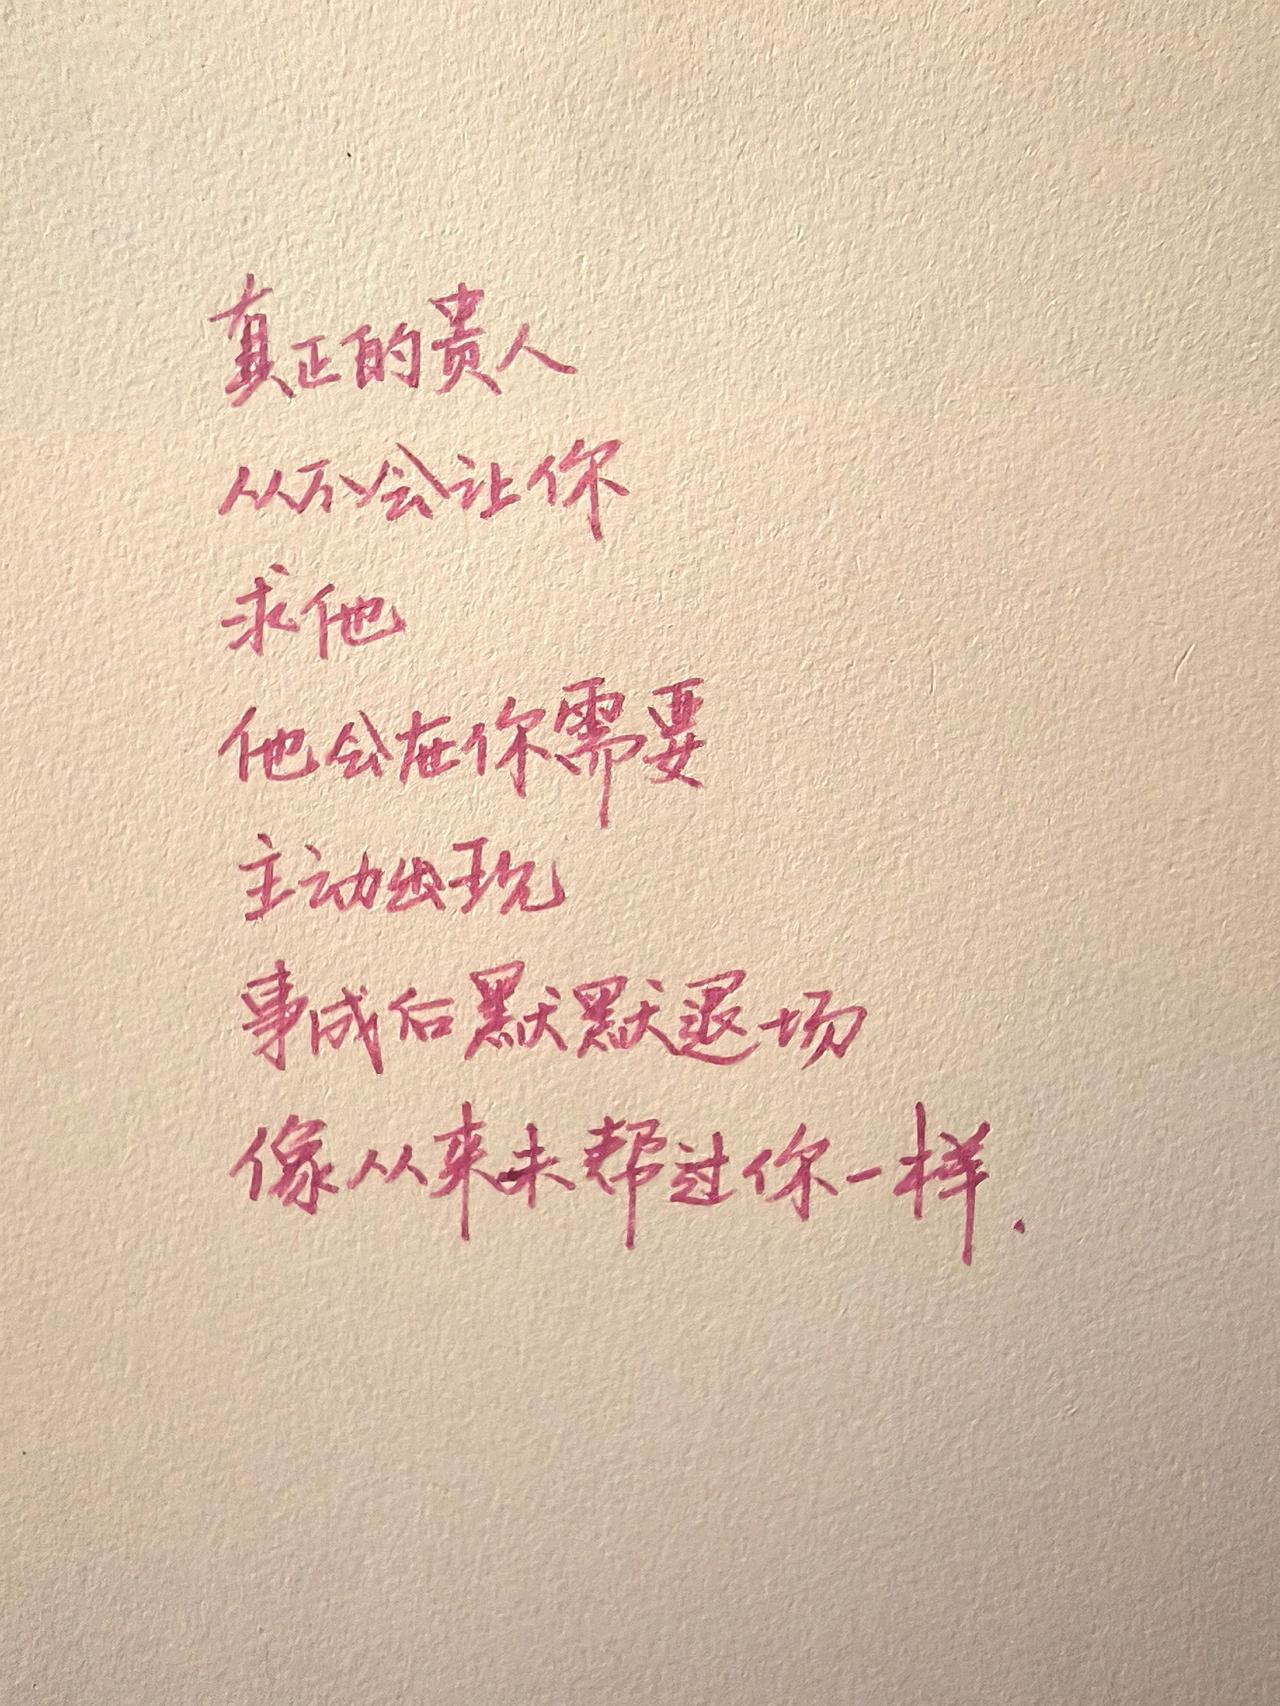 真正的贵人
从不会让你
求他
他会在你需要
主动出现
事成后默默退场
像从来未帮过你一样.